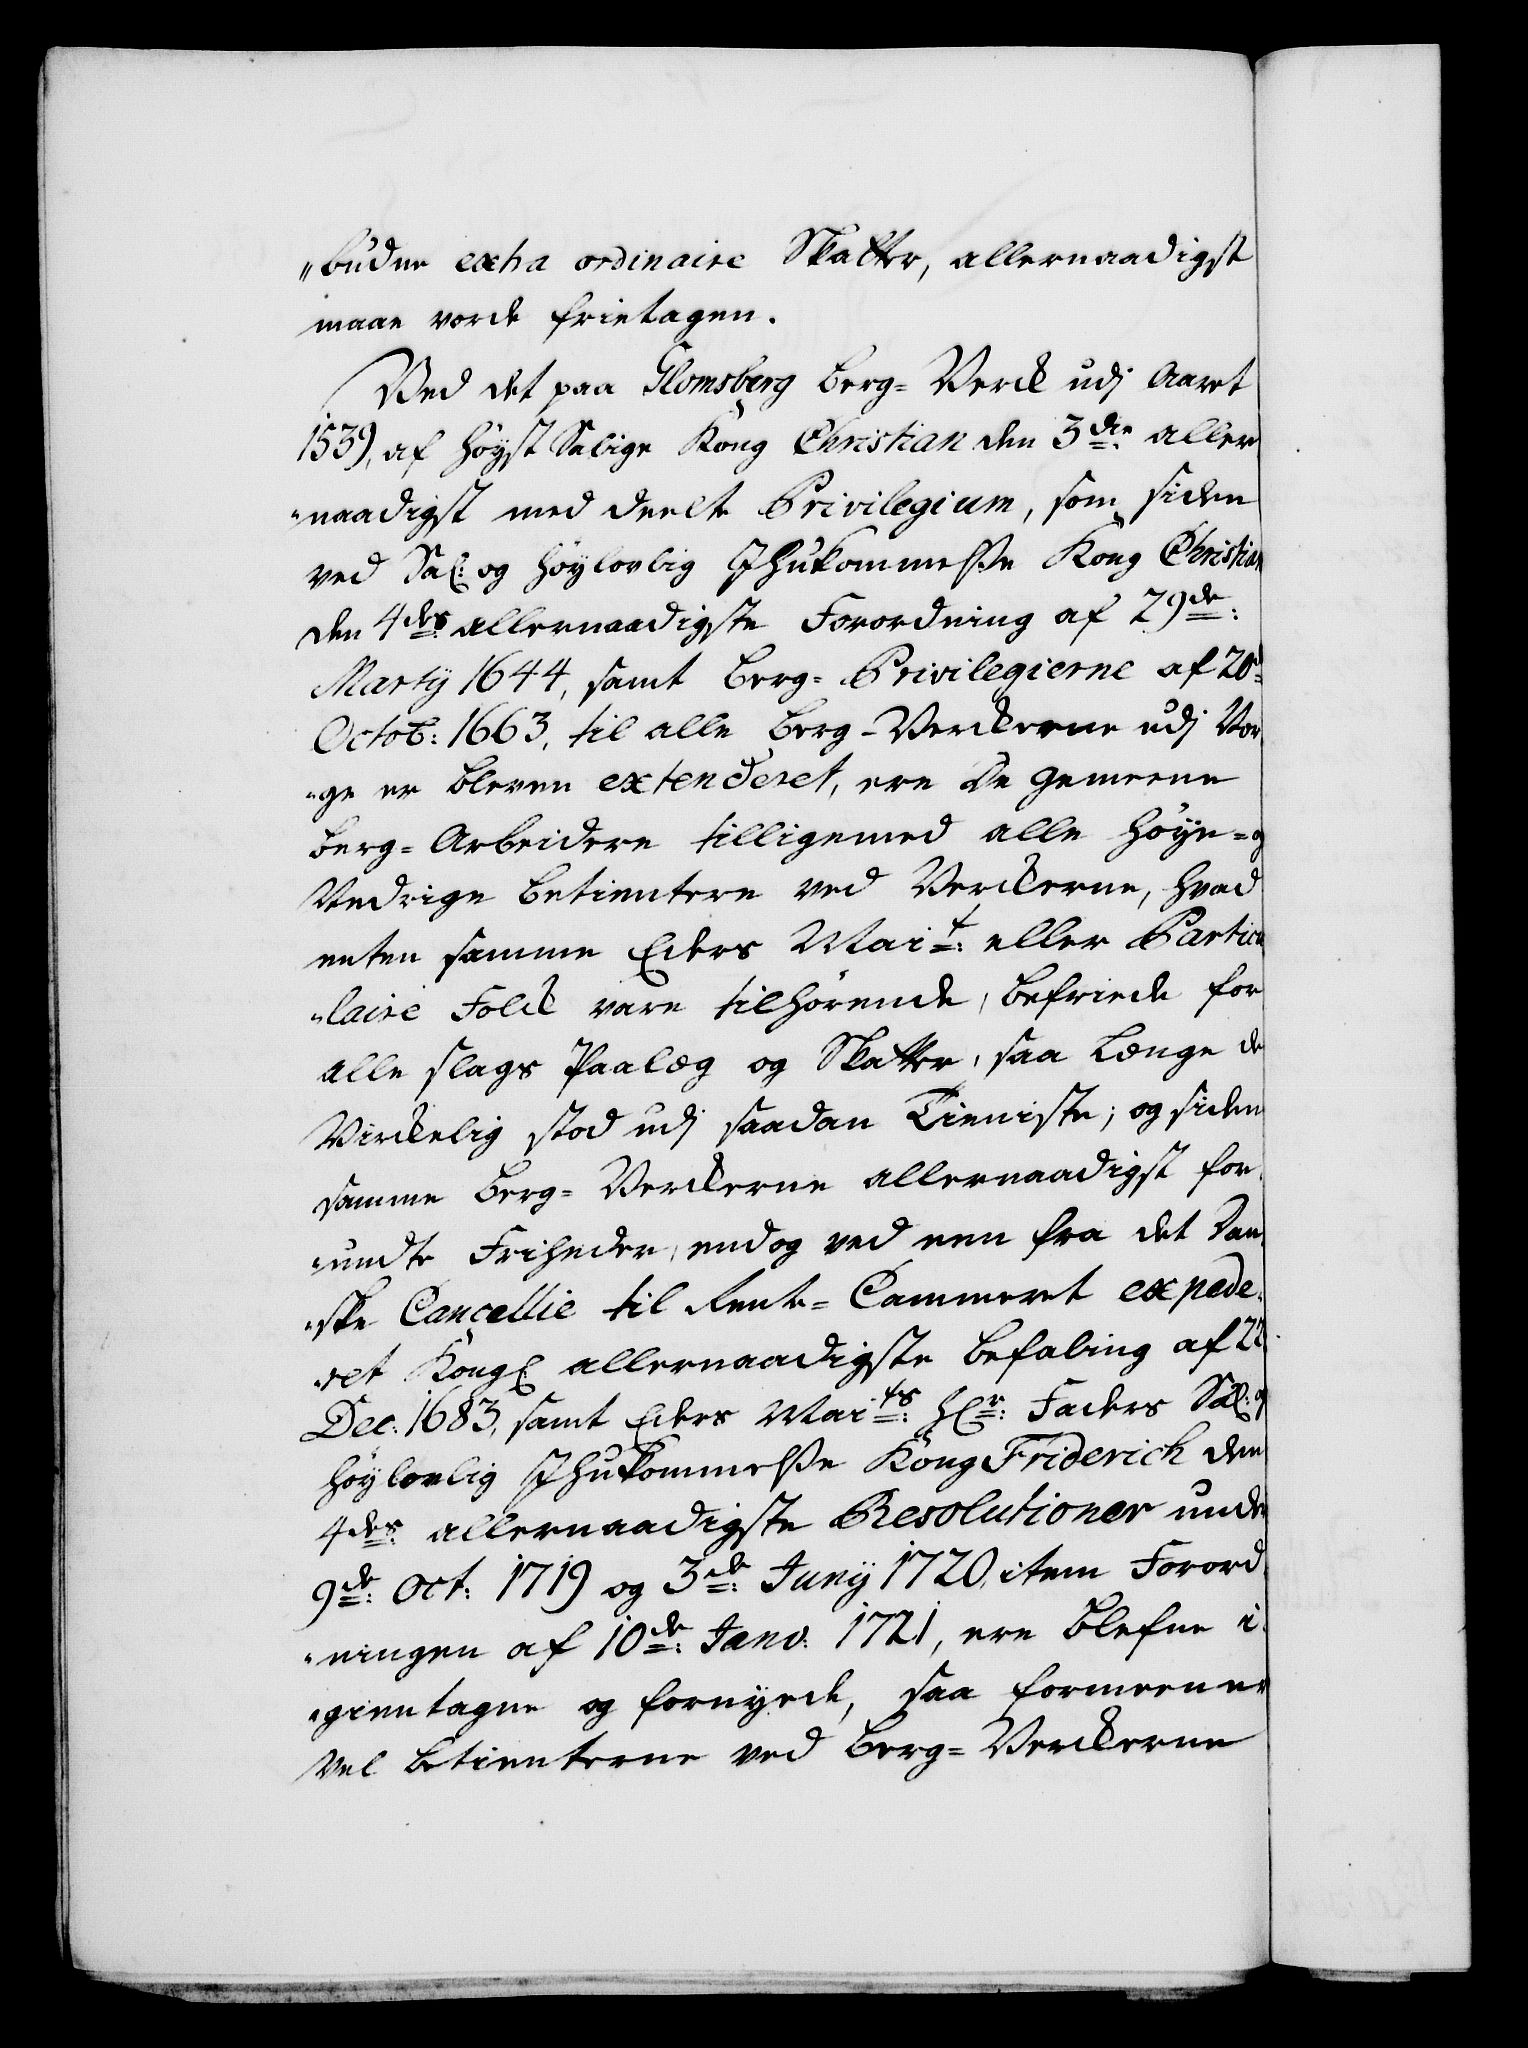 „budne extra ordinaire Skatter, allernaadigst
maae vorde frietagen.
Ved det paa Glomsberg Berg= Verck udj Aaret
1539, af Høyst Salige Kong Christian den 3die aller
„naadigst med deelte Privilegium, som siden
ved Sal: og Høylovlig Ihukommelse Kong Christian
den 4des allernaadigste Forordning af 29de:
Martij 1644, samt Berg= Privilegierne af 20d
Octob: 1663, til alle Berg-Verckerne udj Nor
„ge er bleven extenderet, ere De gemeene
Berg= Arbeidere tilligemed alle Høye= og
Nedrige Betientere ved Verckerne, hvad
enten samme Eders Mait: eller Particu
„laire Folck vare tilhørende, befriede for
alle slags Paalæg og Skatter, saa længe de
Virckelig stod udj saadan Tieniste; og siden
samme Berg= Verckerne allernaadigst for
„undte Friheder, endog ved een fra det Dan
„ske Cancellie til Rente= Cammeret expede„
„ret Kongl allernaadigste Befaling af 22
Dec: 1683, samt Eders Maits: Hr: Faders Sal: og
Høylovlig Ihukommelse Kong Friderich den
4des allernaadigste Resolutioner under
9de: Oct: 1719 og 3de: Junij 1720, item Forord„
„ningen af 10de: Janv: 1721, ere blefne i„
„gientagne og fornyede, saa formeener
Vel Betienterne ved Berg= Verckerne